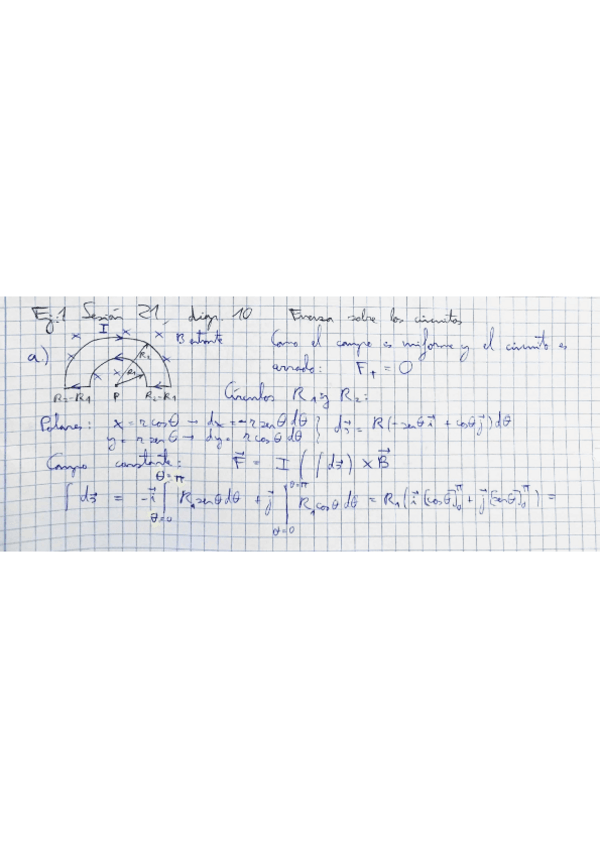 Ej:1 Sesión 21, diap. 10 Fuerza sobre los circuitos
I
a.) B entrante Como el campo es uniforme y el circuito es
R₂ R₁ cerrado: F_T = 0
R₂-R₁ P R₂-R₁ Círculos R₁ y R₂:
Polares: x = r cosθ → dx = -r senθ dθ } d𝑠⃗ = R(-senθ i⃗ + cosθ j⃗) dθ
y = r senθ → dy = r cosθ dθ
Campo constante: F⃗ = I (∫ d𝑠⃗) × B⃗
∫ d𝑠⃗ = -i⃗ ∫_{θ=0}^{θ=π} R₁ senθ dθ + j⃗ ∫_{θ=0}^{θ=π} R₁ cosθ dθ = R₁ (i⃗ [cosθ]₀^π + j⃗ [senθ]₀^π) =